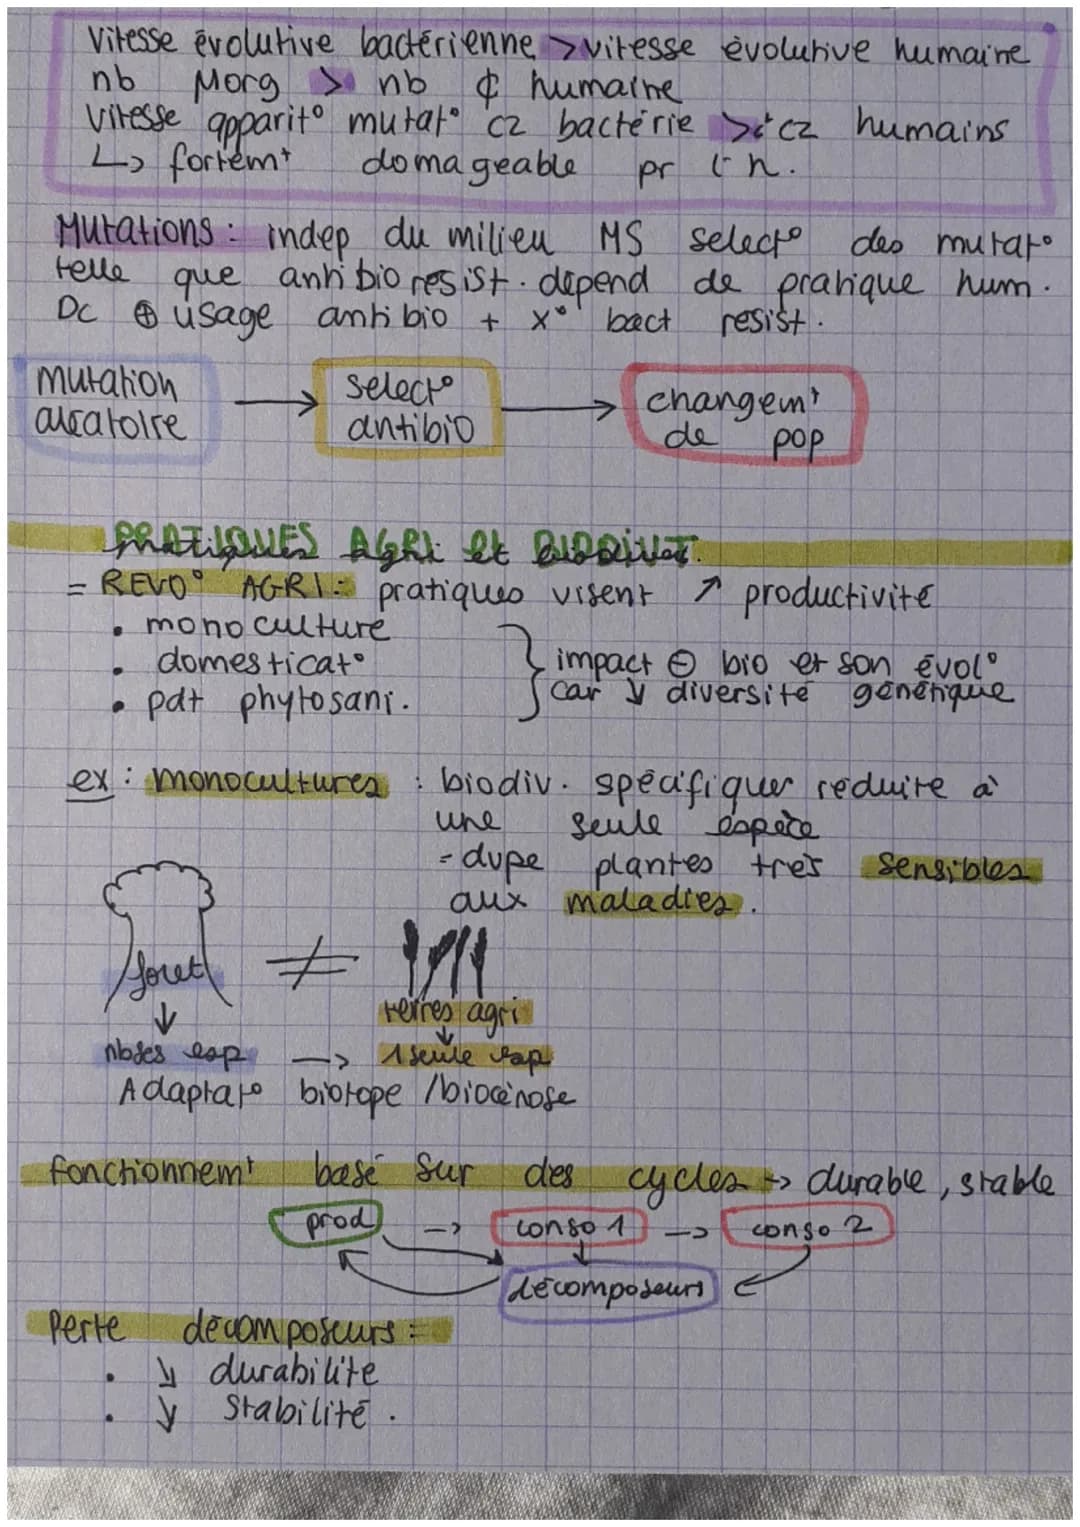 Vitesse évolutive bactérienne > vitesse évolutive humaine
nb Morg > nb ¢ humaine
Vitesse apparit° mutat° cz bactérie > cz humains
↳ fortemt domageable pr h.
Mutations : indep du milieu MS select° des mutat°
telle que antibioresist. dépend de pratique hum.
Dc ⊕ usage antibio + x° bact resist.
mutation aléatoire → select° antibio → changemt de pop
PRATIQUES AGRI et BIODIVT.
= REVO° AGRI : pratiques visent ↗ productivité
• monoculture
• domesticat°
• pdt phytosani.
} impact ⊖ bio et son évol°
car ↓ diversité génétique
ex : monocultures : biodiv. spécifique réduite à
une seule espèce
= dupe plantes très sensibles
aux maladies.
foret ≠ terres agri
↓ ↓
nbses esp → 1 seule esp
Adaptat° biotope / biocénose
fonctionnemt basé sur des cycles → durable, stable
prod → conso 1 → conso 2
décomposeurs
Perte décomposeurs =
• ↘ durabilite
• ↘ Stabilité.